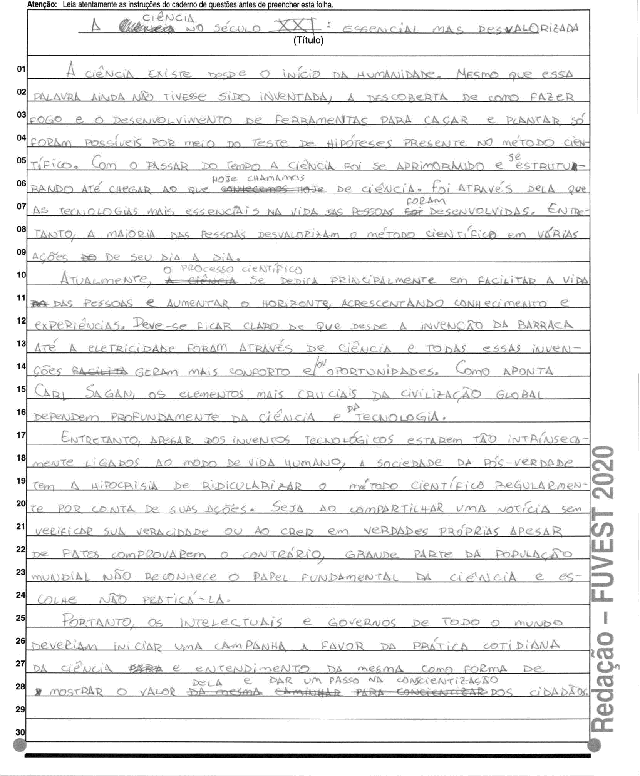 Atenção: Leia atentamente as instruções do caderno de questões antes de preencher esta folha.
CIÊNCIA
A NO SÉCULO XXI: ESSENCIAL MAS DESVALORIZADA
(Título)
01 A CIÊNCIA EXISTE DESDE O INÍCIO DA HUMANIDADE. MESMO QUE ESSA
02 PALAVRA AINDA NÃO TIVESSE SIDO INVENTADA, A DESCOBERTA DE COMO FAZER
03 FOGO E O DESENVOLVIMENTO DE FERRAMENTAS PARA CAÇAR E PLANTAR SÓ
04 FORAM POSSÍVEIS POR MEIO DO TESTE DE HIPÓTESES PRESENTE NO MÉTODO CIEN-
05 TÍFICO. COM O PASSAR DO TEMPO A CIÊNCIA FOI SE APRIMORANDO E SE ESTRUTU-
HOJE CHAMAMOS
06 RANDO ATÉ CHEGAR AO QUE CONHECEMOS HOJE DE CIÊNCIA. FOI ATRAVÉS DELA QUE
FORAM
07 AS TECNOLOGIAS MAIS ESSENCIAIS NA VIDA DAS PESSOAS FOI DESENVOLVIDAS. ENTRE-
08 TANTO, A MAIORIA DAS PESSOAS DESVALORIZAM O MÉTODO CIENTÍFICO EM VÁRIAS
09 AÇÕES DE SEU DIA A DIA.
O PROCESSO CIENTÍFICO
10 ATUALMENTE, A CIÊNCIA SE DEDICA PRINCIPALMENTE EM FACILITAR A VIDA
11 DAS PESSOAS E AUMENTAR O HORIZONTE, ACRESCENTANDO CONHECIMENTO E
12 EXPERIÊNCIAS. DEVE-SE FICAR CLARO DE QUE DESDE A INVENÇÃO DA BARRACA
13 ATÉ A ELETRICIDADE FORAM ATRAVÉS DE CIÊNCIA E TODAS ESSAS INVEN-
14 ÇÕES FACILITA GERAM MAIS CONFORTO E/OU OPORTUNIDADES. COMO APONTA
15 CARL SAGAN, OS ELEMENTOS MAIS CRUCIAIS DA CIVILIZAÇÃO GLOBAL
16 DEPENDEM PROFUNDAMENTE DA CIÊNCIA E DA TECNOLOGIA.
17 ENTRETANTO, APESAR DOS INVENTOS TECNOLÓGICOS ESTAREM TÃO INTRÍNSECA-
18 MENTE LIGADOS AO MODO DE VIDA HUMANO, A SOCIEDADE DA PÓS-VERDADE
19 TEM A HIPOCRISIA DE RIDICULARIZAR O MÉTODO CIENTÍFICO REGULARMEN-
20 TE POR CONTA DE SUAS AÇÕES. SEJA AO COMPARTILHAR UMA NOTÍCIA SEM
21 VERIFICAR SUA VERACIDADE OU AO CRER EM VERDADES PRÓPRIAS APESAR
22 DE FATOS COMPROVAREM O CONTRÁRIO, GRANDE PARTE DA POPULAÇÃO
23 MUNDIAL NÃO RECONHECE O PAPEL FUNDAMENTAL DA CIÊNCIA E ES-
24 COLHE NÃO PRATICÁ-LA.
25 PORTANTO, OS INTELECTUAIS E GOVERNOS DE TODO O MUNDO
26 DEVERIAM INICIAR UMA CAMPANHA A FAVOR DA PRÁTICA COTIDIANA
27 DA CIÊNCIA PARA E ENTENDIMENTO DA MESMA COMO FORMA DE
DELA E DAR UM PASSO NA CONSCIENTIZAÇÃO
28 MOSTRAR O VALOR DA MESMA CAMINHAR PARA CONCIENTIZAR DOS CIDADÃOS
29
30
Redação – FUVEST 2020